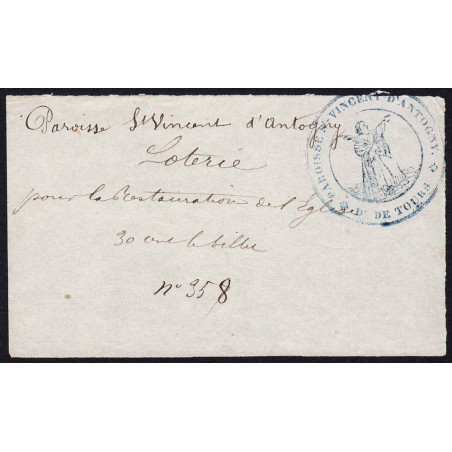 Paroisse St Vincent d'Antogny
Loterie
pour la Restauration de l'Eglise
30 cent le billet
n° 358
PAROISSE St VINCENT D'ANTOGNY.
Dse DE TOURS